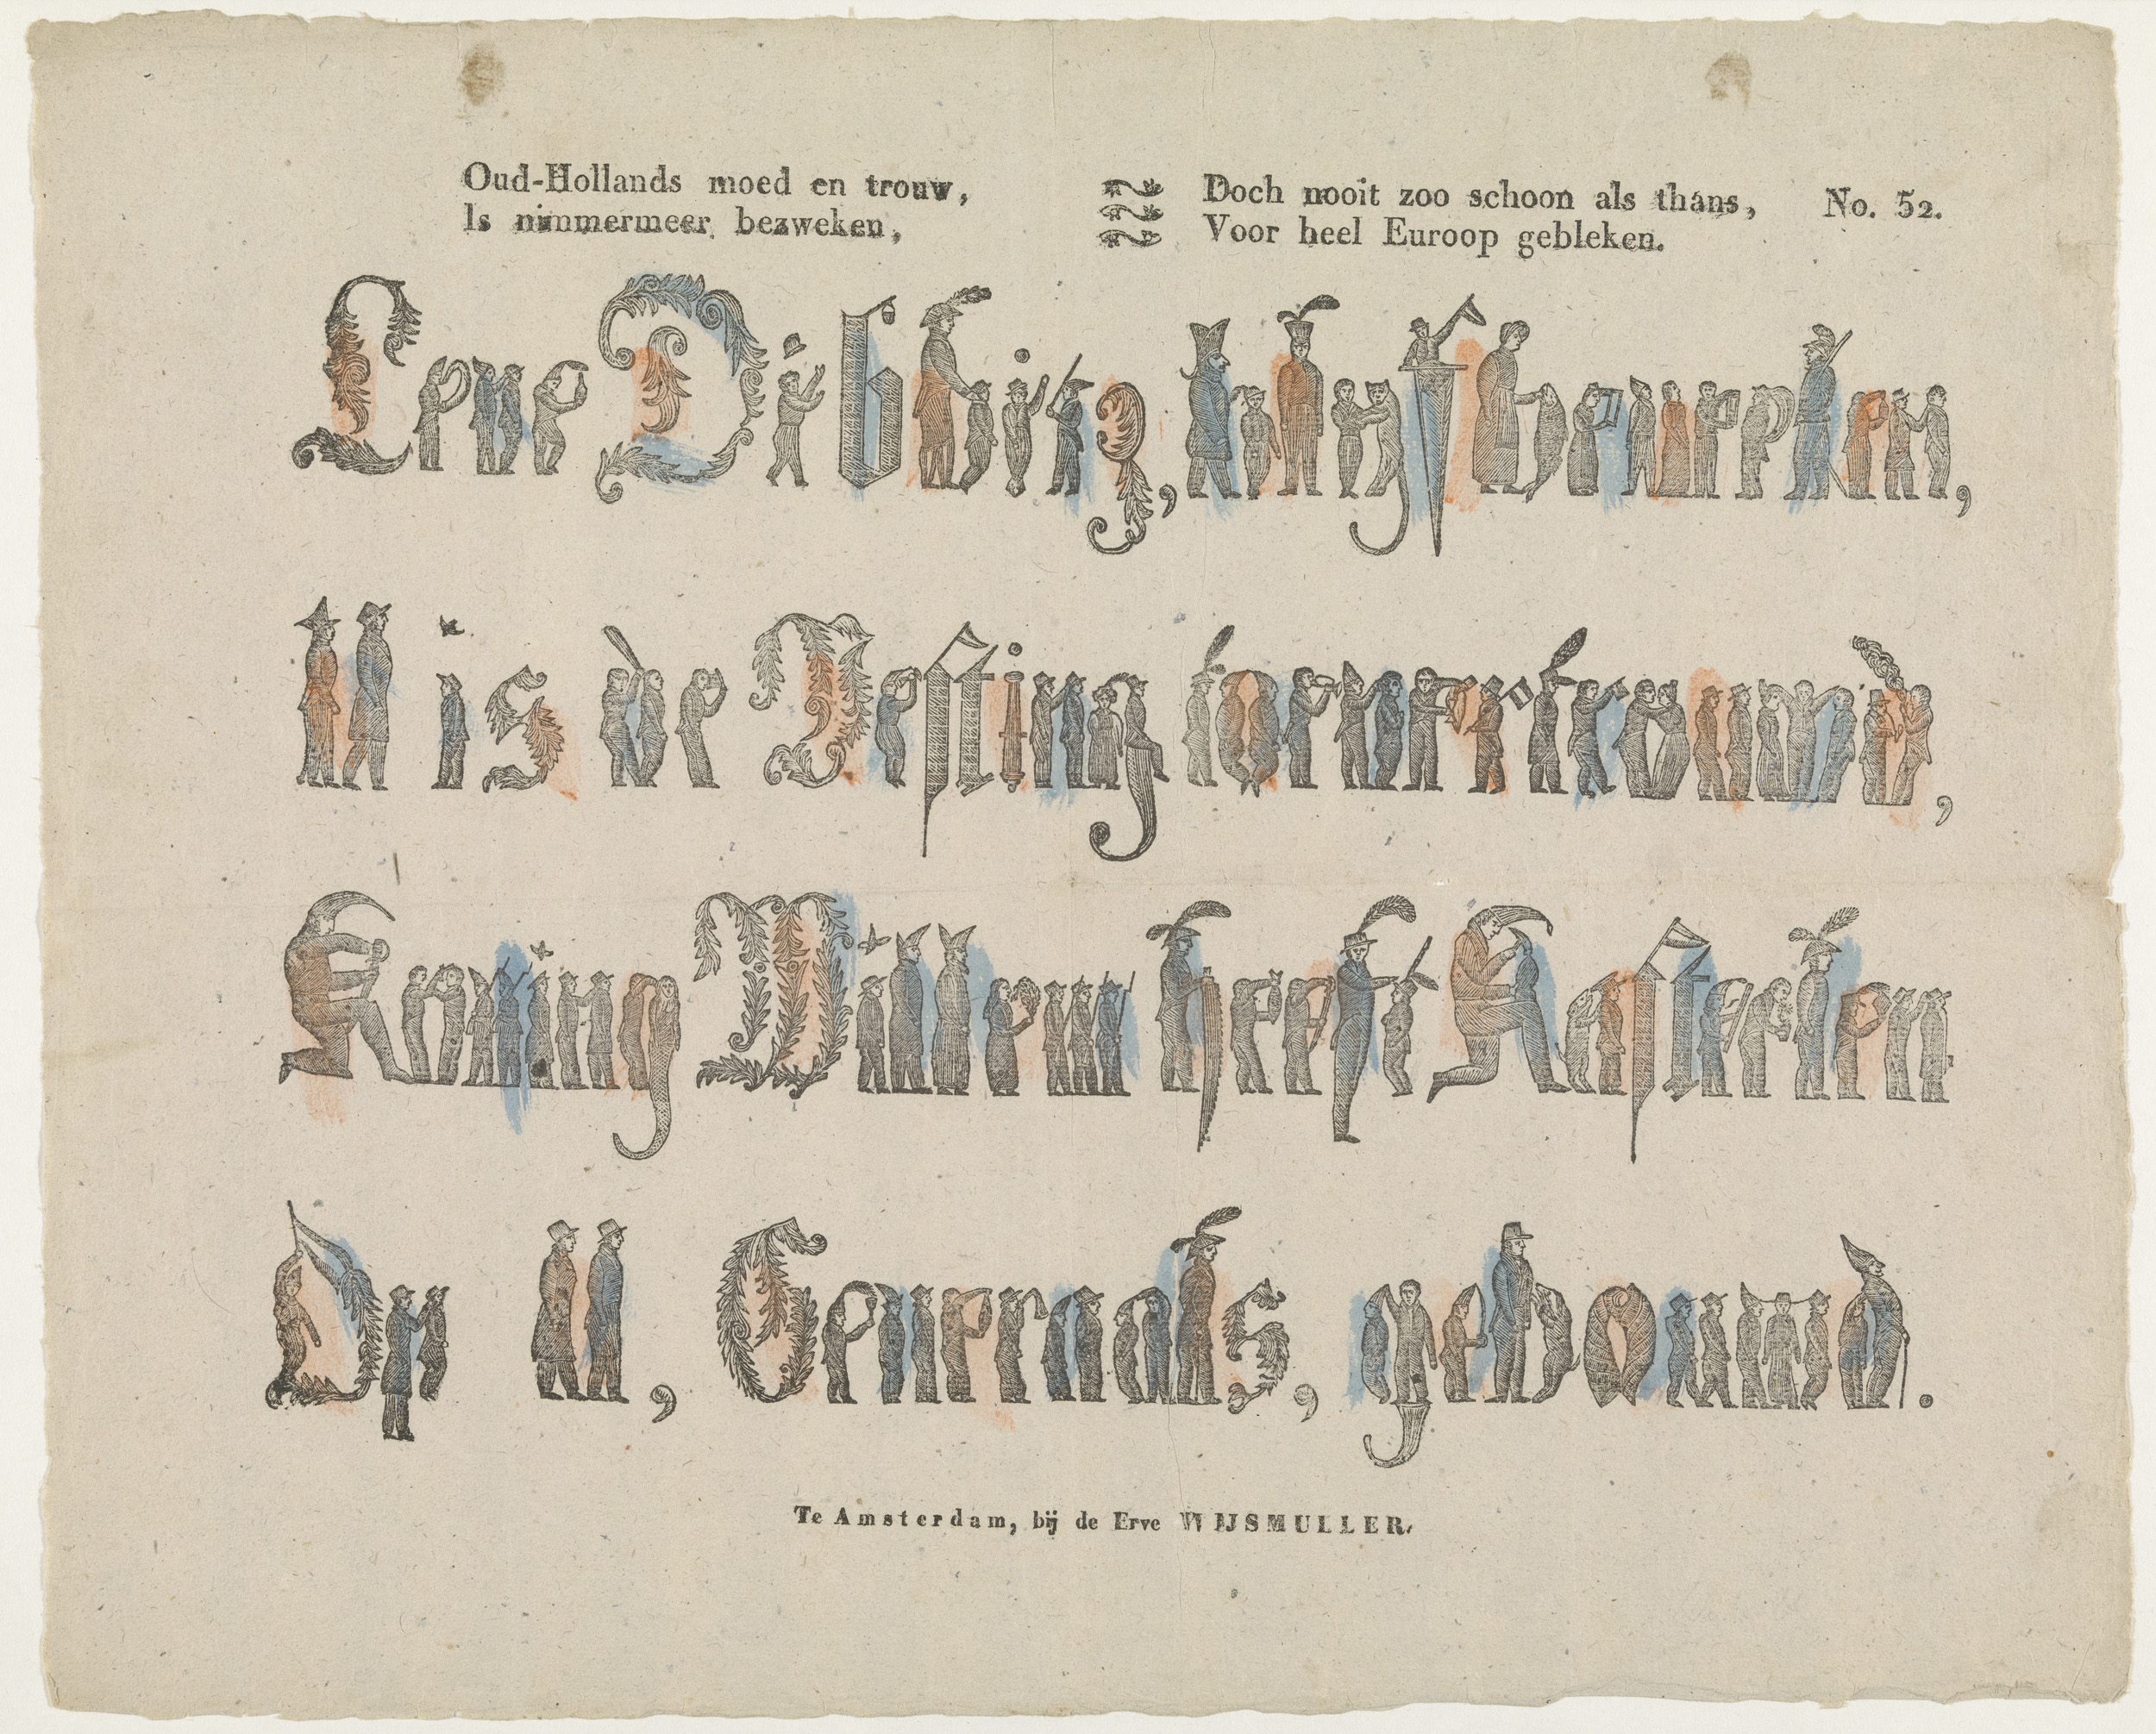 Oud-Hollands moed en trouw,
Is nimmermeer bezweken,
Doch nooit zoo schoon als thans,
Voor heel Euroop gebleken.
No. 52.
Leve Dibbitz,
U is de Vesting toevertrouwd,
Koning Willem heeft Kasteelen
Op U, Generaals, gebouwd.
Te Amsterdam, bij de Erve WIJSMULLER.